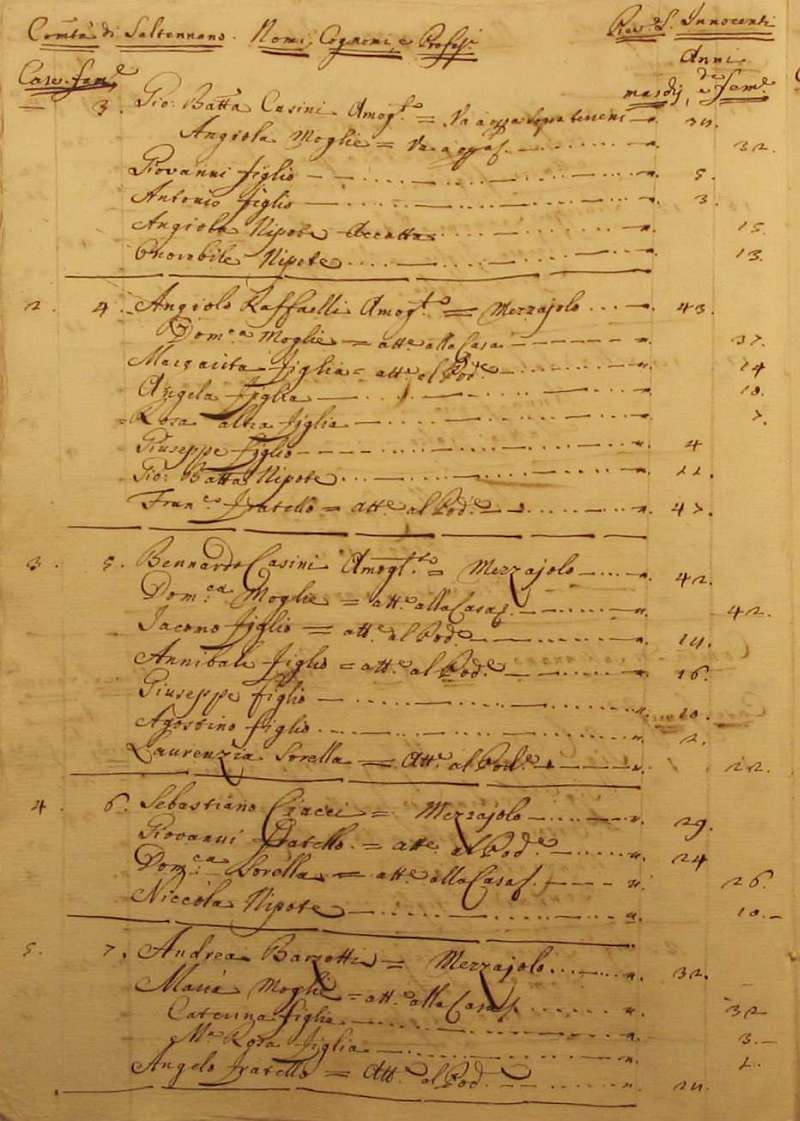 Com.tà di Salternano. Nomi, Cognomi, e Profess.i Piev. S. Innocenti
Case. fam.e Anni
de
maschj, e fem.e
3. Gio: Batta Casini Amog.to = Va a opra 
Angiola Moglie = Va a opra 32.
Giovanni figlio 5.
Antonio figlio 3.
Angiola Nipote Accatta 15.
Onorabile Nipote 13.
2. 4. Angiolo Raffaelli Amog.to = Mezzajolo 43.
Dom.ca Moglie = att.e alla Casa 37.
Margarita figlia = att.e al Pod.e 14
Angela figlia 10.
Rosa altra figlia 7.
Giuseppe figlio 4
Gio: Batta Nipote 11.
Fran.co fratello = att.e al Pod.e 47.
3. 5. Bennardo Casini Amogl.to = Mezzajolo 42.
Dom.ca Moglie = att.e alla Casa 42.
Iacomo figlio = att.e al Pod.e 14.
Annibale figlio = att.e al Pod.e 16.
Giuseppe figlio 10.
Agostino figlio 2.
Laurenzia Sorella = Att.e al Pod.e 22.
4. 6. Sebastiano Ciacci = Mezzajolo 29.
Giovanni fratello = att.e al Pod.e 24
Dom.ca Sorella = att.e alla Casa 26.
Niccola Nipote 10.
5. 7. Andrea Barzotti = Mezzajolo 32.
Maria Moglie = att.e alla Casa 32
Caterina figlia 3.
M.a Rosa figlia
Angelo fratello = Att.e al Pod.e